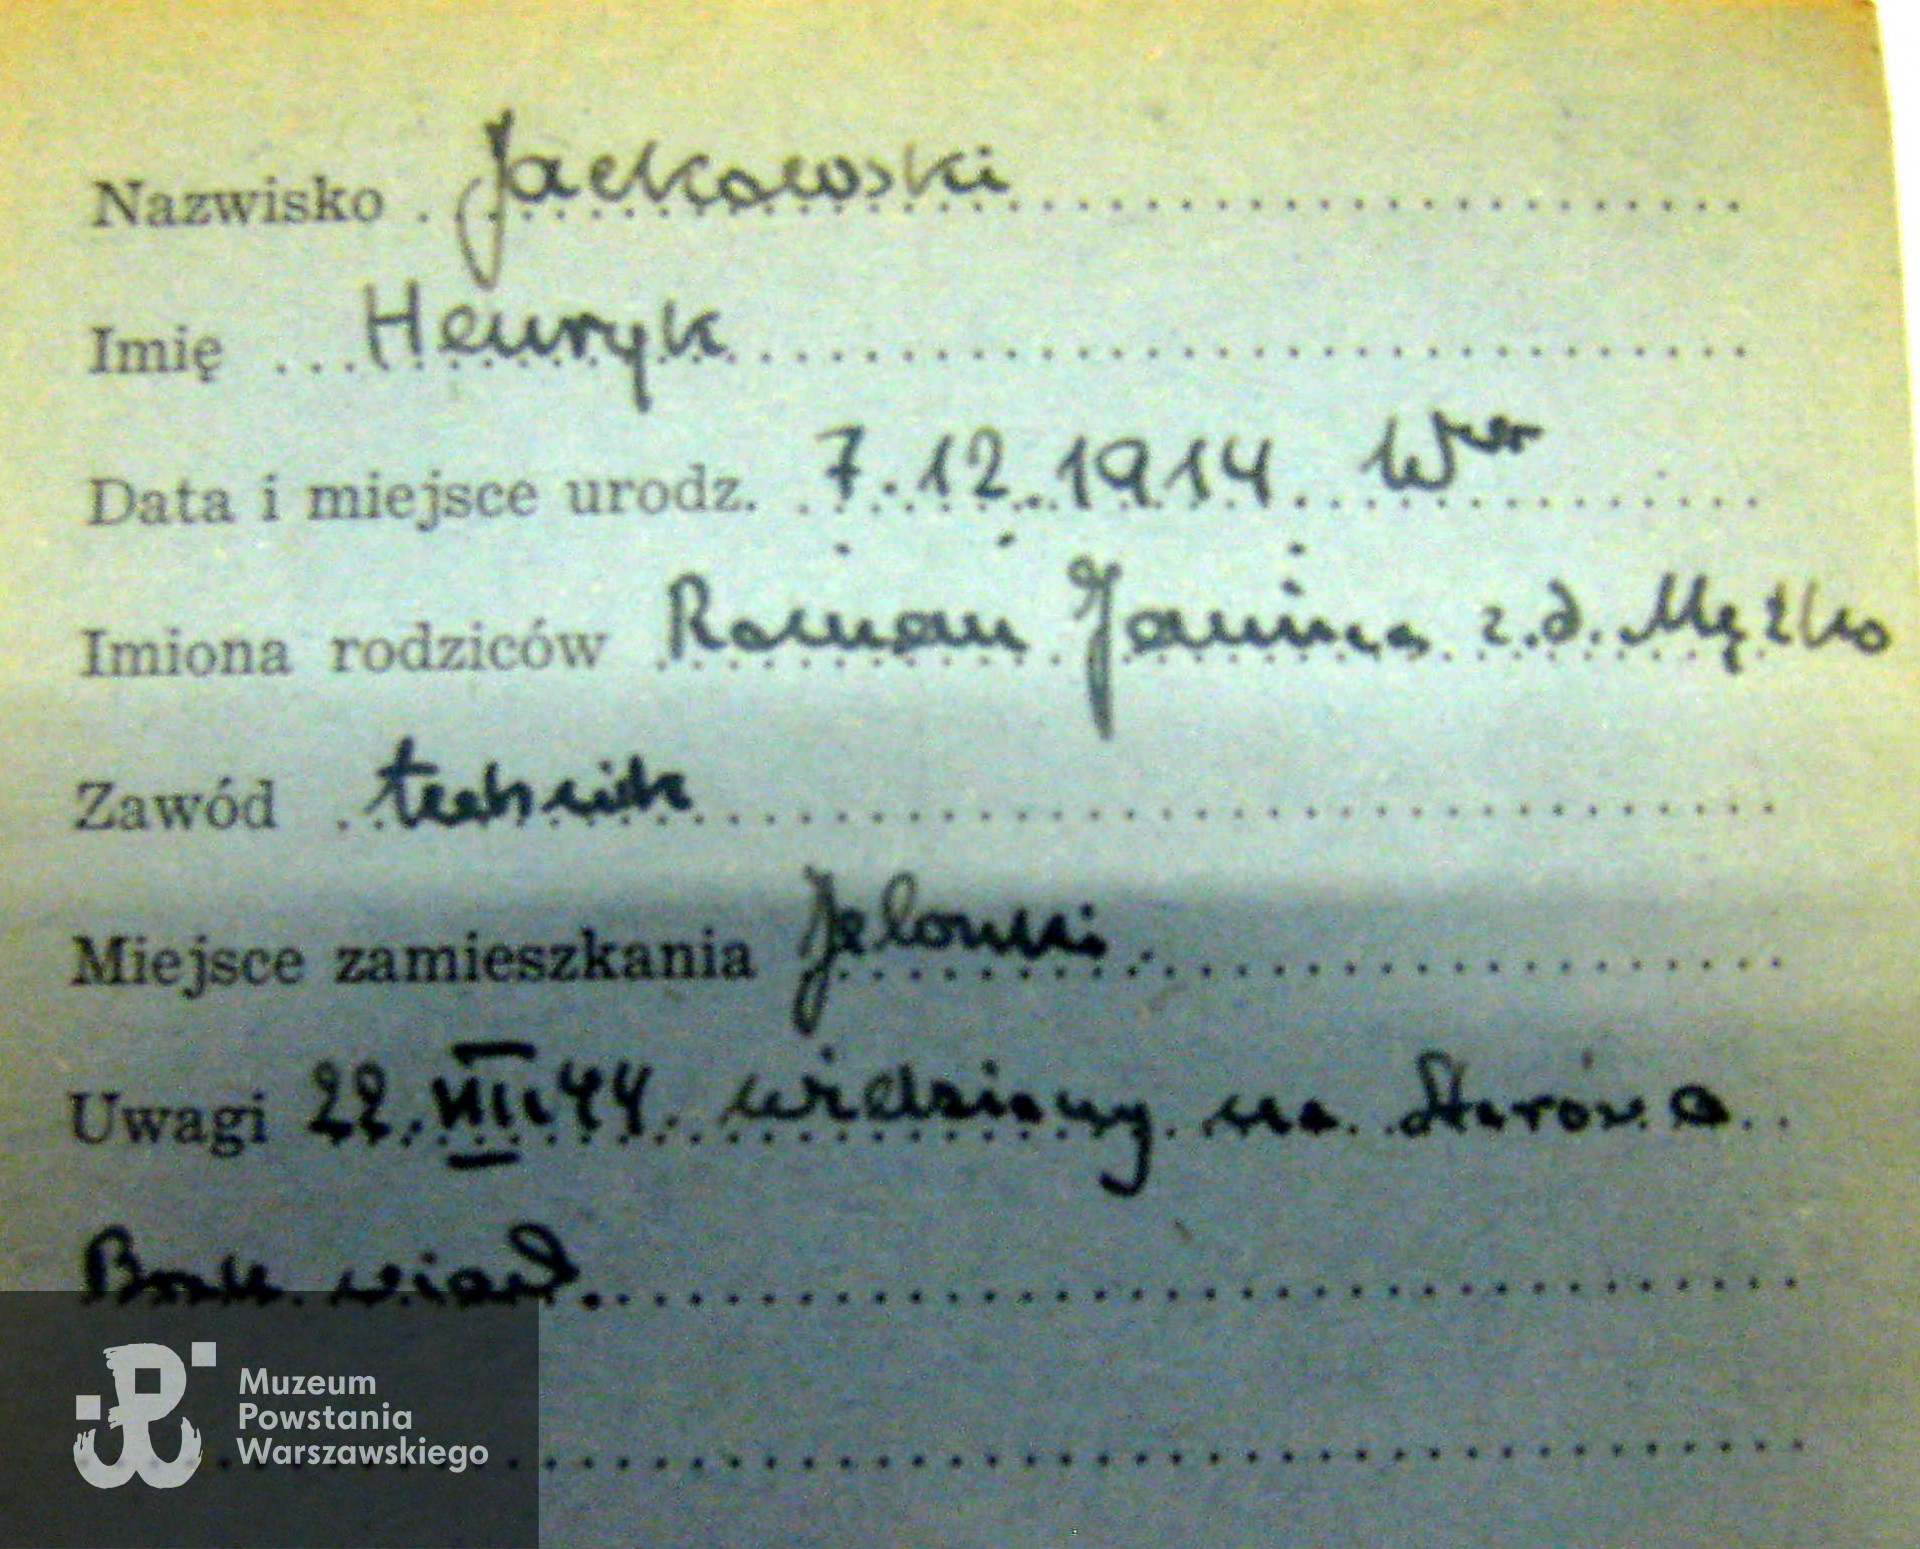 Nazwisko Jackowski
Imię Henryk
Data i miejsce urodz. 7.12.1914 Wwa
Imiona rodziców Roman Janina z.d.
Zawód technik
Miejsce zamieszkania Jelonki
Uwagi 22.VIII.44. widziany na Starówce
Brak wiad.
Muzeum
Powstania
Warszawskiego